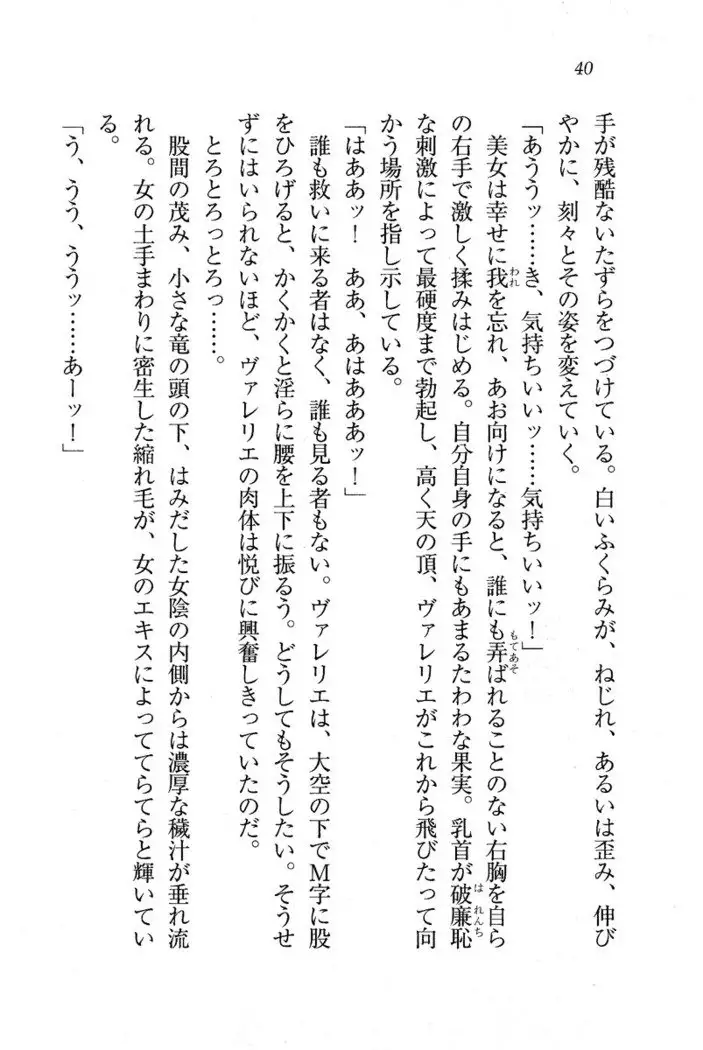 40
手が残酷ないたずらをつづけている。白いふくらみが、ねじれ、あるいは歪み、伸び
やかに、刻々とその姿を変えていく。
「あううッ……き、気持ちいいッ……気持ちいいッ！」
われ
もてあそ
美女は幸せに我を忘れ、あお向けになると、誰にも弄ばれることのない右胸を自ら
はれんち
の右手で激しく揉みはじめる。自分自身の手にもあまるたわわな果実。乳首が破廉恥
な刺激によって最硬度まで勃起し、高く天の頂、ヴァレリエがこれから飛びたって向
かう場所を指し示している。
「はああッ！　ああ、あはあああッ！」
誰も救いに来る者はなく、誰も見る者もない。ヴァレリエは、大空の下でM字に股
をひろげると、かくかくと淫らに腰を上下に振るう。どうしてもそうしたい。そうせ
ずにはいられないほど、ヴァレリエの肉体は悦びに興奮しきっていたのだ。
とろとろっとろっ……。
股間の茂み、小さな竜の頭の下、はみだした女陰の内側からは濃厚な穢汁が垂れ流
れる。女の土手まわりに密生した縮れ毛が、女のエキスによっててらてらと輝いてい
る。
「う、うう、ううッ……あーッ！」